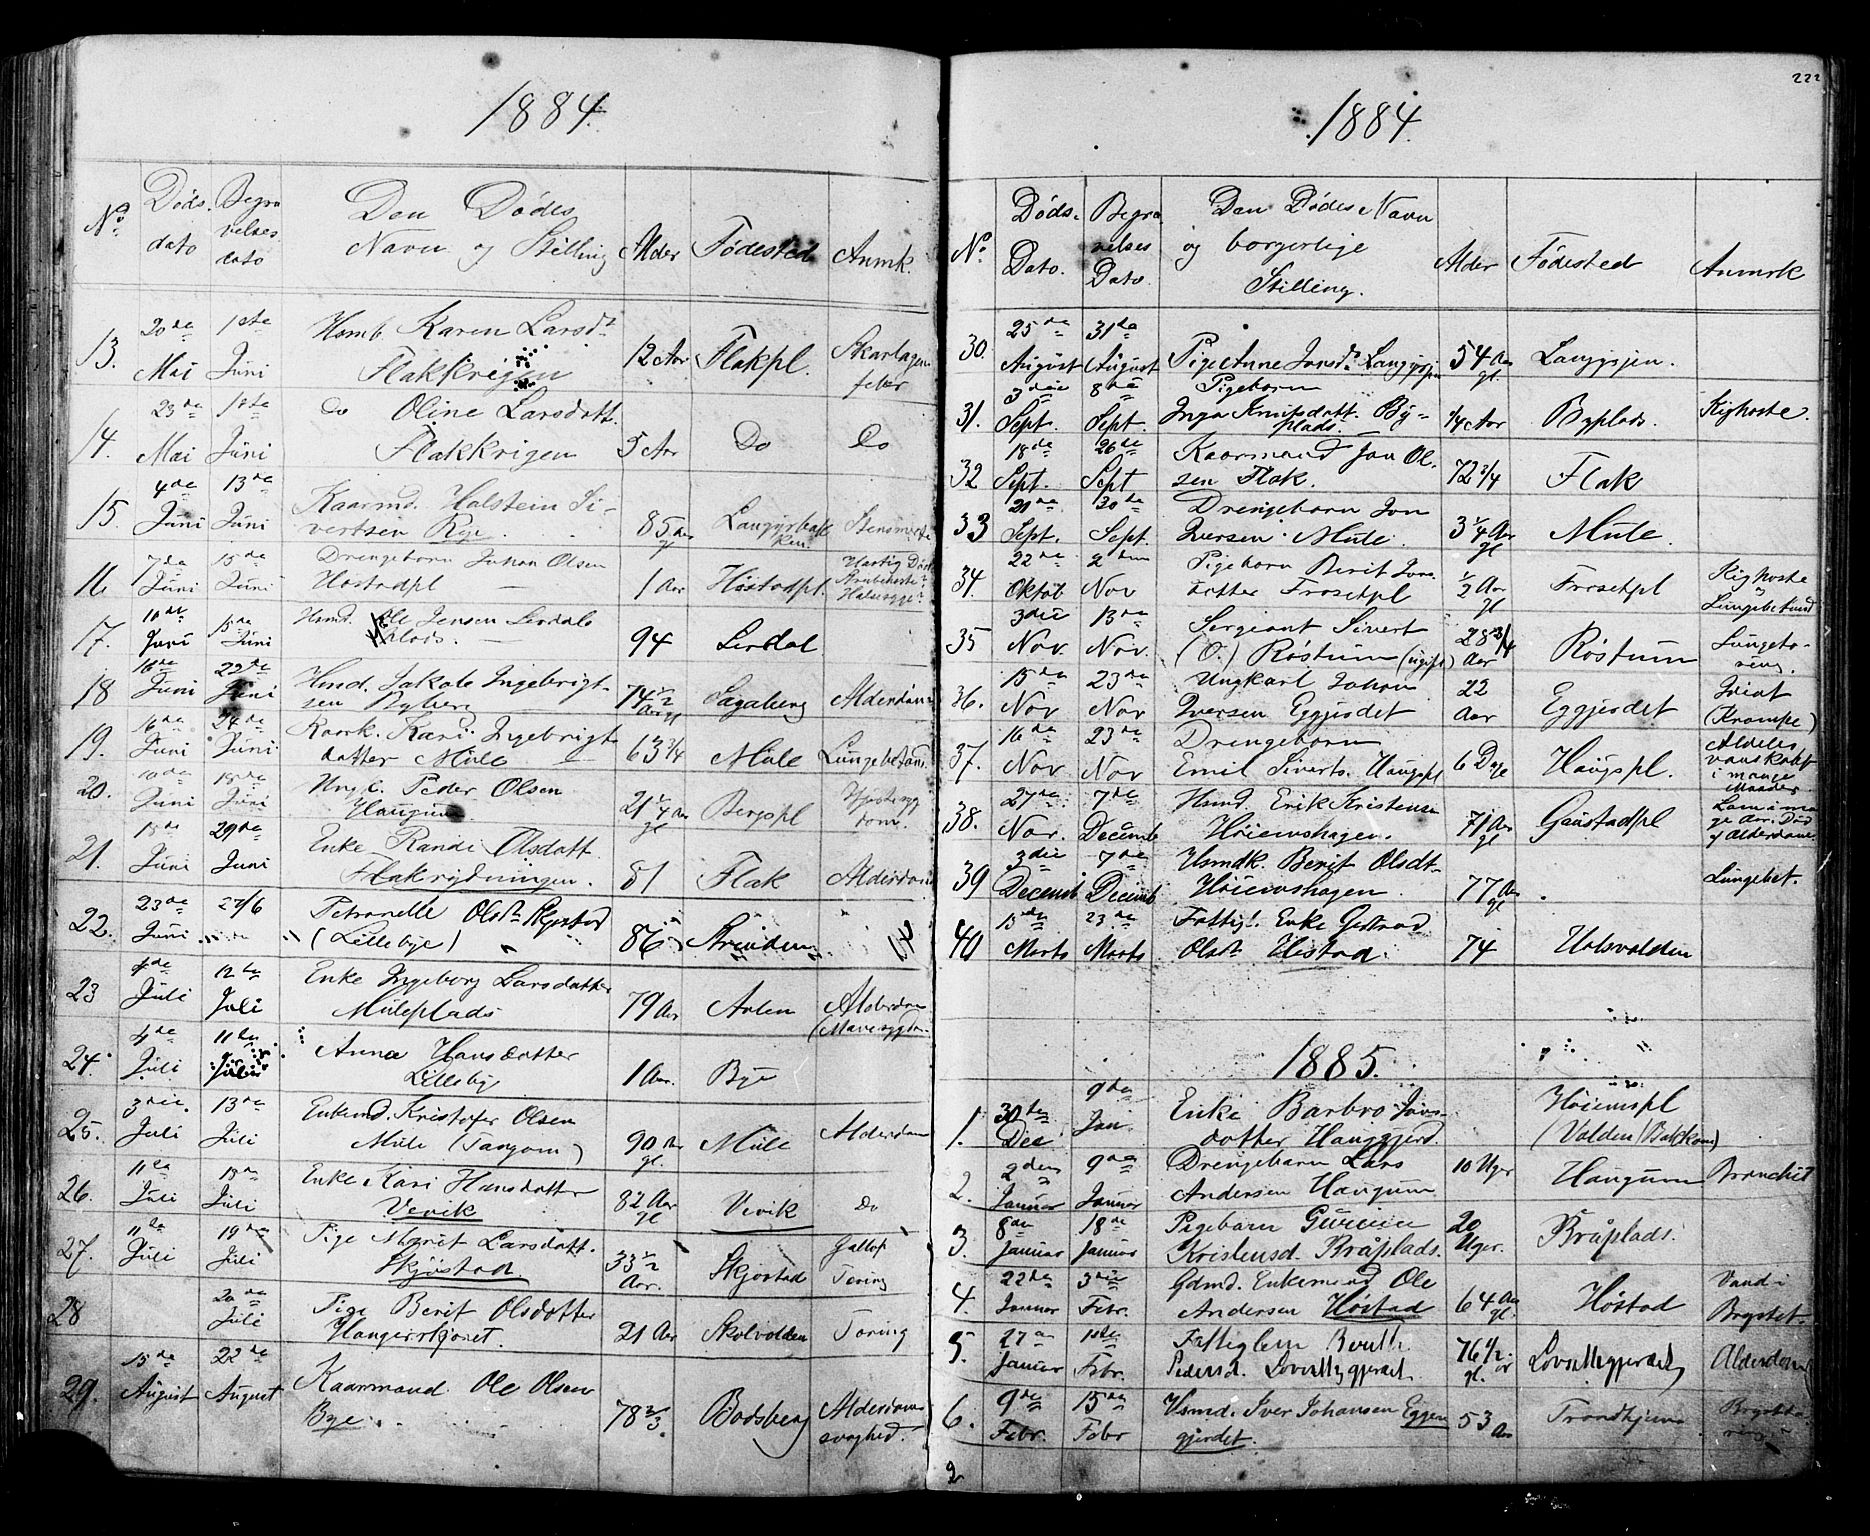 1884.
No. Døds. dato Begravelses dato Den Dødes Navn og Stilling Alder Fødested Anmk.
13. 20de Mai 1ste Juni Hsmb. Karen Larsdt. Flakkrigen 12 Aar Flakpl. Skarlagen feber
14. 23de Mai 1ste Juni Do Oline Larsdatt. Flakkrigen 5 Aar Do Do
15. 4de Juni 13de Juni Kaarmd. Halstein Sivertsen Rye 85 Aar gl
16 7de Juni 15de Juni Drengebarn Johan Olsen Høstadpl 1 Aar Høstadpl.
17. 10de Juni 15de Juni Hsmd. Ole Jensen Lerdals plads. 94 Lerdal
18 16de Juni 22de Juni Hmd. Jakob Ingebrigtsen 74 1/2 Aar gl Sagaberg Alderdom
19. 16de Juni 24de Juni Kaark. Kari Ingebrigtdatter Mule 63 3/4 Mule Lungebetænd.
20. 10de Juni 18de Juni Ungk. Peder Olsen Haugum 21 1/4 Aar gl Bergspl
21. 18de Juni 29de Juni Enke Randi Olsdatt. Flakrydningen. 81 Flak Alderdom
22. 23de Juni 27/6 Petronelle Olsdt. (Lillebye) 86 Strinden
23 4de Juli 12te Juli Enke Ingeborg Larsdatter Muleplads 79 Aar Aalen Alderdom (Mavesygdom
24. 4de Juli 11te Juli Anna Hansdatter Lillebye 1 Aar. Bye
25. 3die Juli 13de Juli Enkemd. Kristofer Olsen Mule 90 Aar gl. Mule Alderdom
26. 11te Juli 18de Juli Enke Kari Hansdatter Vevik 82 Aar gl Vevik do
27. 11te Juli 19de Juli Pige Marit Larsdatt. Skjøstad 33 1/2 Aar. Skjøstad Gallop Tæring
28 20de Juli Pige Berit Olsdatter 21 Aar Skolvolden Tæring
29. 15de August 22de August Kaarmand Ole Olsen Bye 78 2/3. Bodsberg Alderdomssvaghed.
222
1884.
No. Døds. Dato. Begravelses Dato. Den Dødes Navn og borgerlige Stilling. Alder Fødested Anmrk
30. 25de August 31te August Pige Anne Jonsdt. Langgsjen 54 Aar gl. Langgsjen.
31. 3die Sept. 8de Sept. Pigebarn Inga Knutsdatt. Byplads. 1/4 Aar Byplads. Kighoste.
32 18de Sept. 26de Sept Kaarmand Jon Olsen Flak. 72 3/4 Flak
33 20de Sept. 30te Sept. Drengebarn Jon Iversen Mule 3 1/4 Aar gl Mule.
34. 22de Oktob 2den Nov Pigebarn Berit Jonsdatter Frosetpl 1/2 Aar gl Frosetpl Kighoste og Lungebetænd
35 3die Nov. 13de Nov. Sergeant Sivert (O.) Røstum (ugift) 28 3/4 Aar Røstum Lungetæring.
36. 15de Nov 23de Nov Ungkarl Johan Iversen Eggjerdet 22 Aar Eggjerdet (Krampe)
37. 16de Nov 23de Nov Drengebarn Emil Siverts. Haugspl 6 Dage Haugspl. Aldeles vanskabt i mange Maader.
38. 27de Nov. 7de Decemb Hsmd. Erik Kristensen Høiemshagen. 71 Aar gl Gaustadpl Lam i mange Aar. Død af Alderdom.
39 3die Decemb 7de Decemb Hsmdk. Berit Olsdt. Høiemshagen 77 Aar gl Lungebet.
40 15de Marts 23de Marts Fattigl. Enke Gjertrud Olsdt. Høstad. 74
1885.
1. 30te Dec 9de Jan. Enke Barbro Jonsdatter Hauggjerd. Høiemspl (Volden/Bakken)
2. 2den Januar 9de Januar Drengebarn Lars Andersen Haugum 10 Uger Haugum Bronchit
3. 8de Januar 18de Januar Pigebarn Kristensd. Bråplads. 20 Uger. Bråplads.
4. 22de Januar 3die Febr. Gdmd. Enkemand Ole Andersen Høstad 64 Aar gl. Høstad Vand i Brystet.
5. 27de Januar 1ste Febr. Fattiglem Berith Pedersd. 76 1/2 Aar gl. Alderdom
6. 9de Febr. 15de Febr Hsmd. Iver Johansen Eggengjerdet. 53 Aar Trondhjem